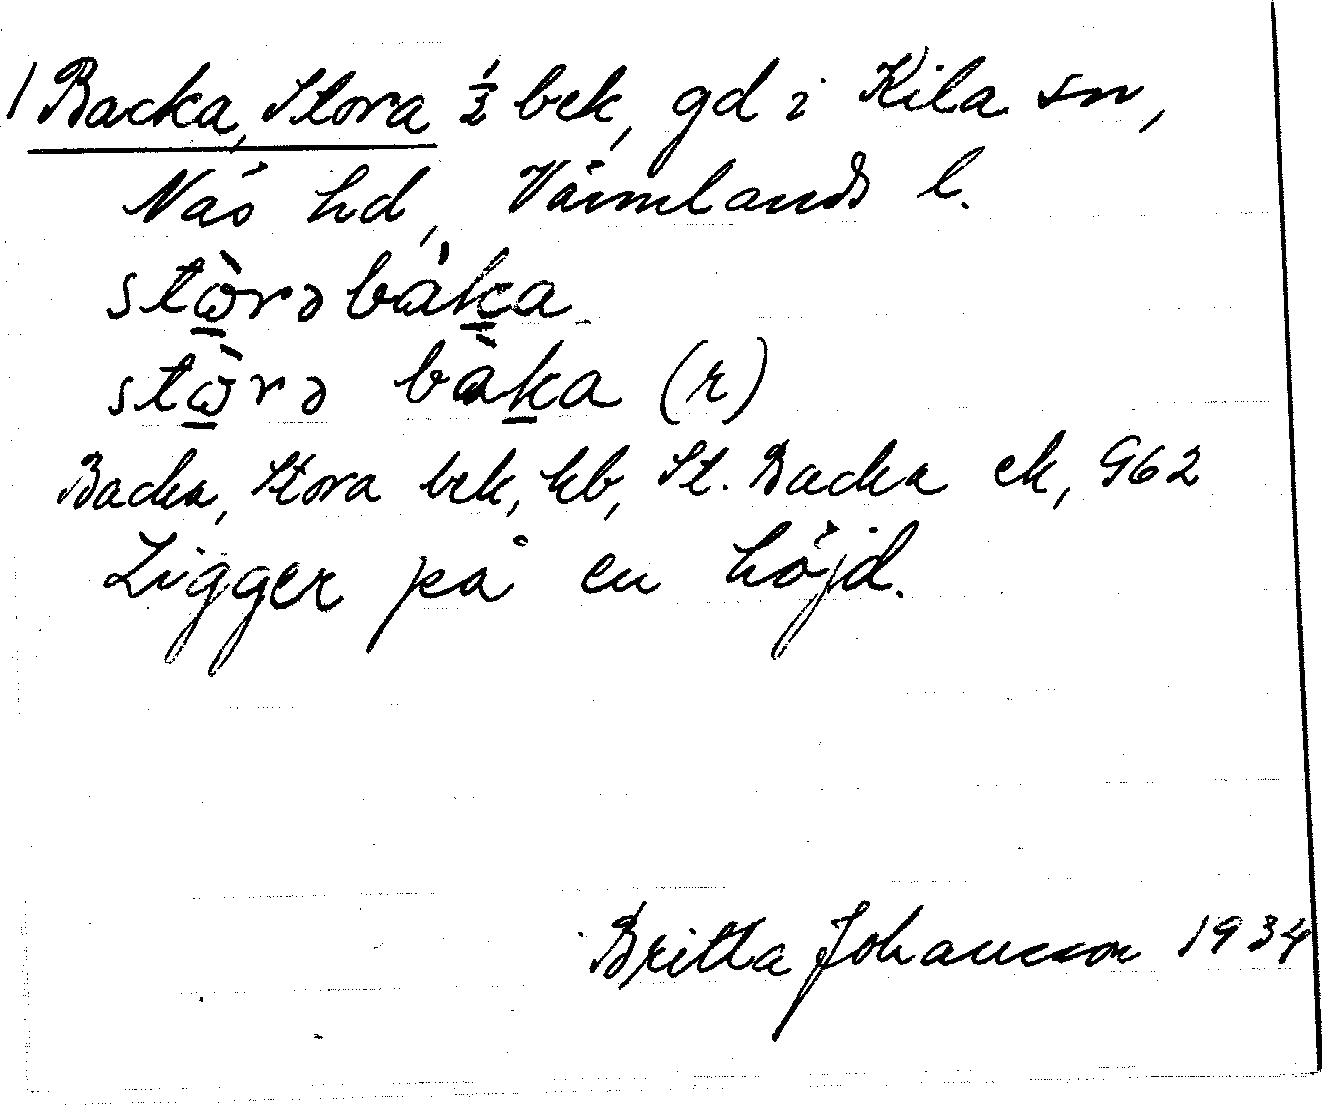 1 Backa, Stora ½ bek, gd i Kila sn,
Näs hd, Värmlands l.
stὼ̲rəbák̲a
stὼ̲rə bàk̲a (r)
Backa, Stora bek, kb, St. Backa ek, 962
Ligger på en höjd.
Britta Johansson 1934